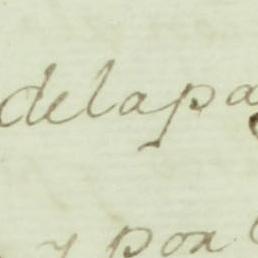 de la pa
y por